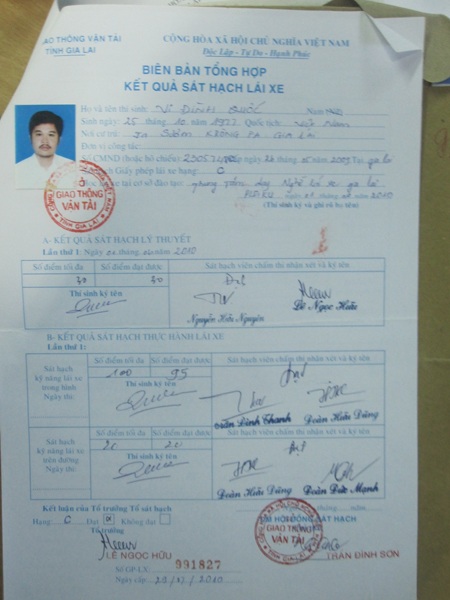 AO THÔNG VẬN TẢI
TỈNH GIA LAI
CỘNG HÒA XÃ HỘI CHỦ NGHĨA VIỆT NAM
Độc Lập - Tự Do - Hạnh Phúc
BIÊN BẢN TỔNG HỢP
KẾT QUẢ SÁT HẠCH LÁI XE
Họ và tên thí sinh: VI ĐÌNH QUỐC
Sinh ngày: 25 tháng 10 năm 1977 Quốc tịch: Việt Nam
Nơi cư trú: KRÔNG PA GIA LAI
Đơn vị công tác:
Số CMND (hoặc hộ chiếu) ngày 2009 Tại gia lai
Giấy phép lái xe hạng: C
tại cơ sở đào tạo: trung tâm dạy Nghề lái xe gia lai
2010
(Thí sinh ký và ghi rõ họ tên)
SỞ
GIAO THÔNG
VẬN TẢI
TỈNH GIA LAI
A- KẾT QUẢ SÁT HẠCH LÝ THUYẾT
Lần thứ 1: Ngày 2010
Số điểm tối đa Số điểm đạt được Sát hạch viên chấm thi nhận xét và ký tên
30 30 Đạt
Thí sinh ký tên
Nguyễn Hữu Nguyên Lê Ngọc Hữu
B- KẾT QUẢ SÁT HẠCH THỰC HÀNH LÁI XE
Lần thứ 1:
Sát hạch kỹ năng lái xe trong hình
Ngày thi:
Số điểm tối đa Số điểm đạt được Sát hạch viên chấm thi nhận xét và ký tên
100 95 Đạt
Thí sinh ký tên
Trần Đình Thanh Đoàn Hữu Dũng
Sát hạch kỹ năng lái xe trên đường
Ngày thi:
Số điểm tối đa Số điểm đạt được Sát hạch viên chấm thi nhận xét và ký tên
20 20 Đạt
Thí sinh ký tên
Đoàn Hữu Dũng Đoàn Đức Mạnh
Kết luận của Tổ trưởng Tổ sát hạch
Hạng: C Đạt Không đạt
Tổ trưởng
HỘI ĐỒNG SÁT HẠCH
GIAO THÔNG
VẬN TẢI
LÊ NGỌC HỮU
TRẦN ĐÌNH SƠN
Số GPLX: 991827
Ngày cấp: 2010